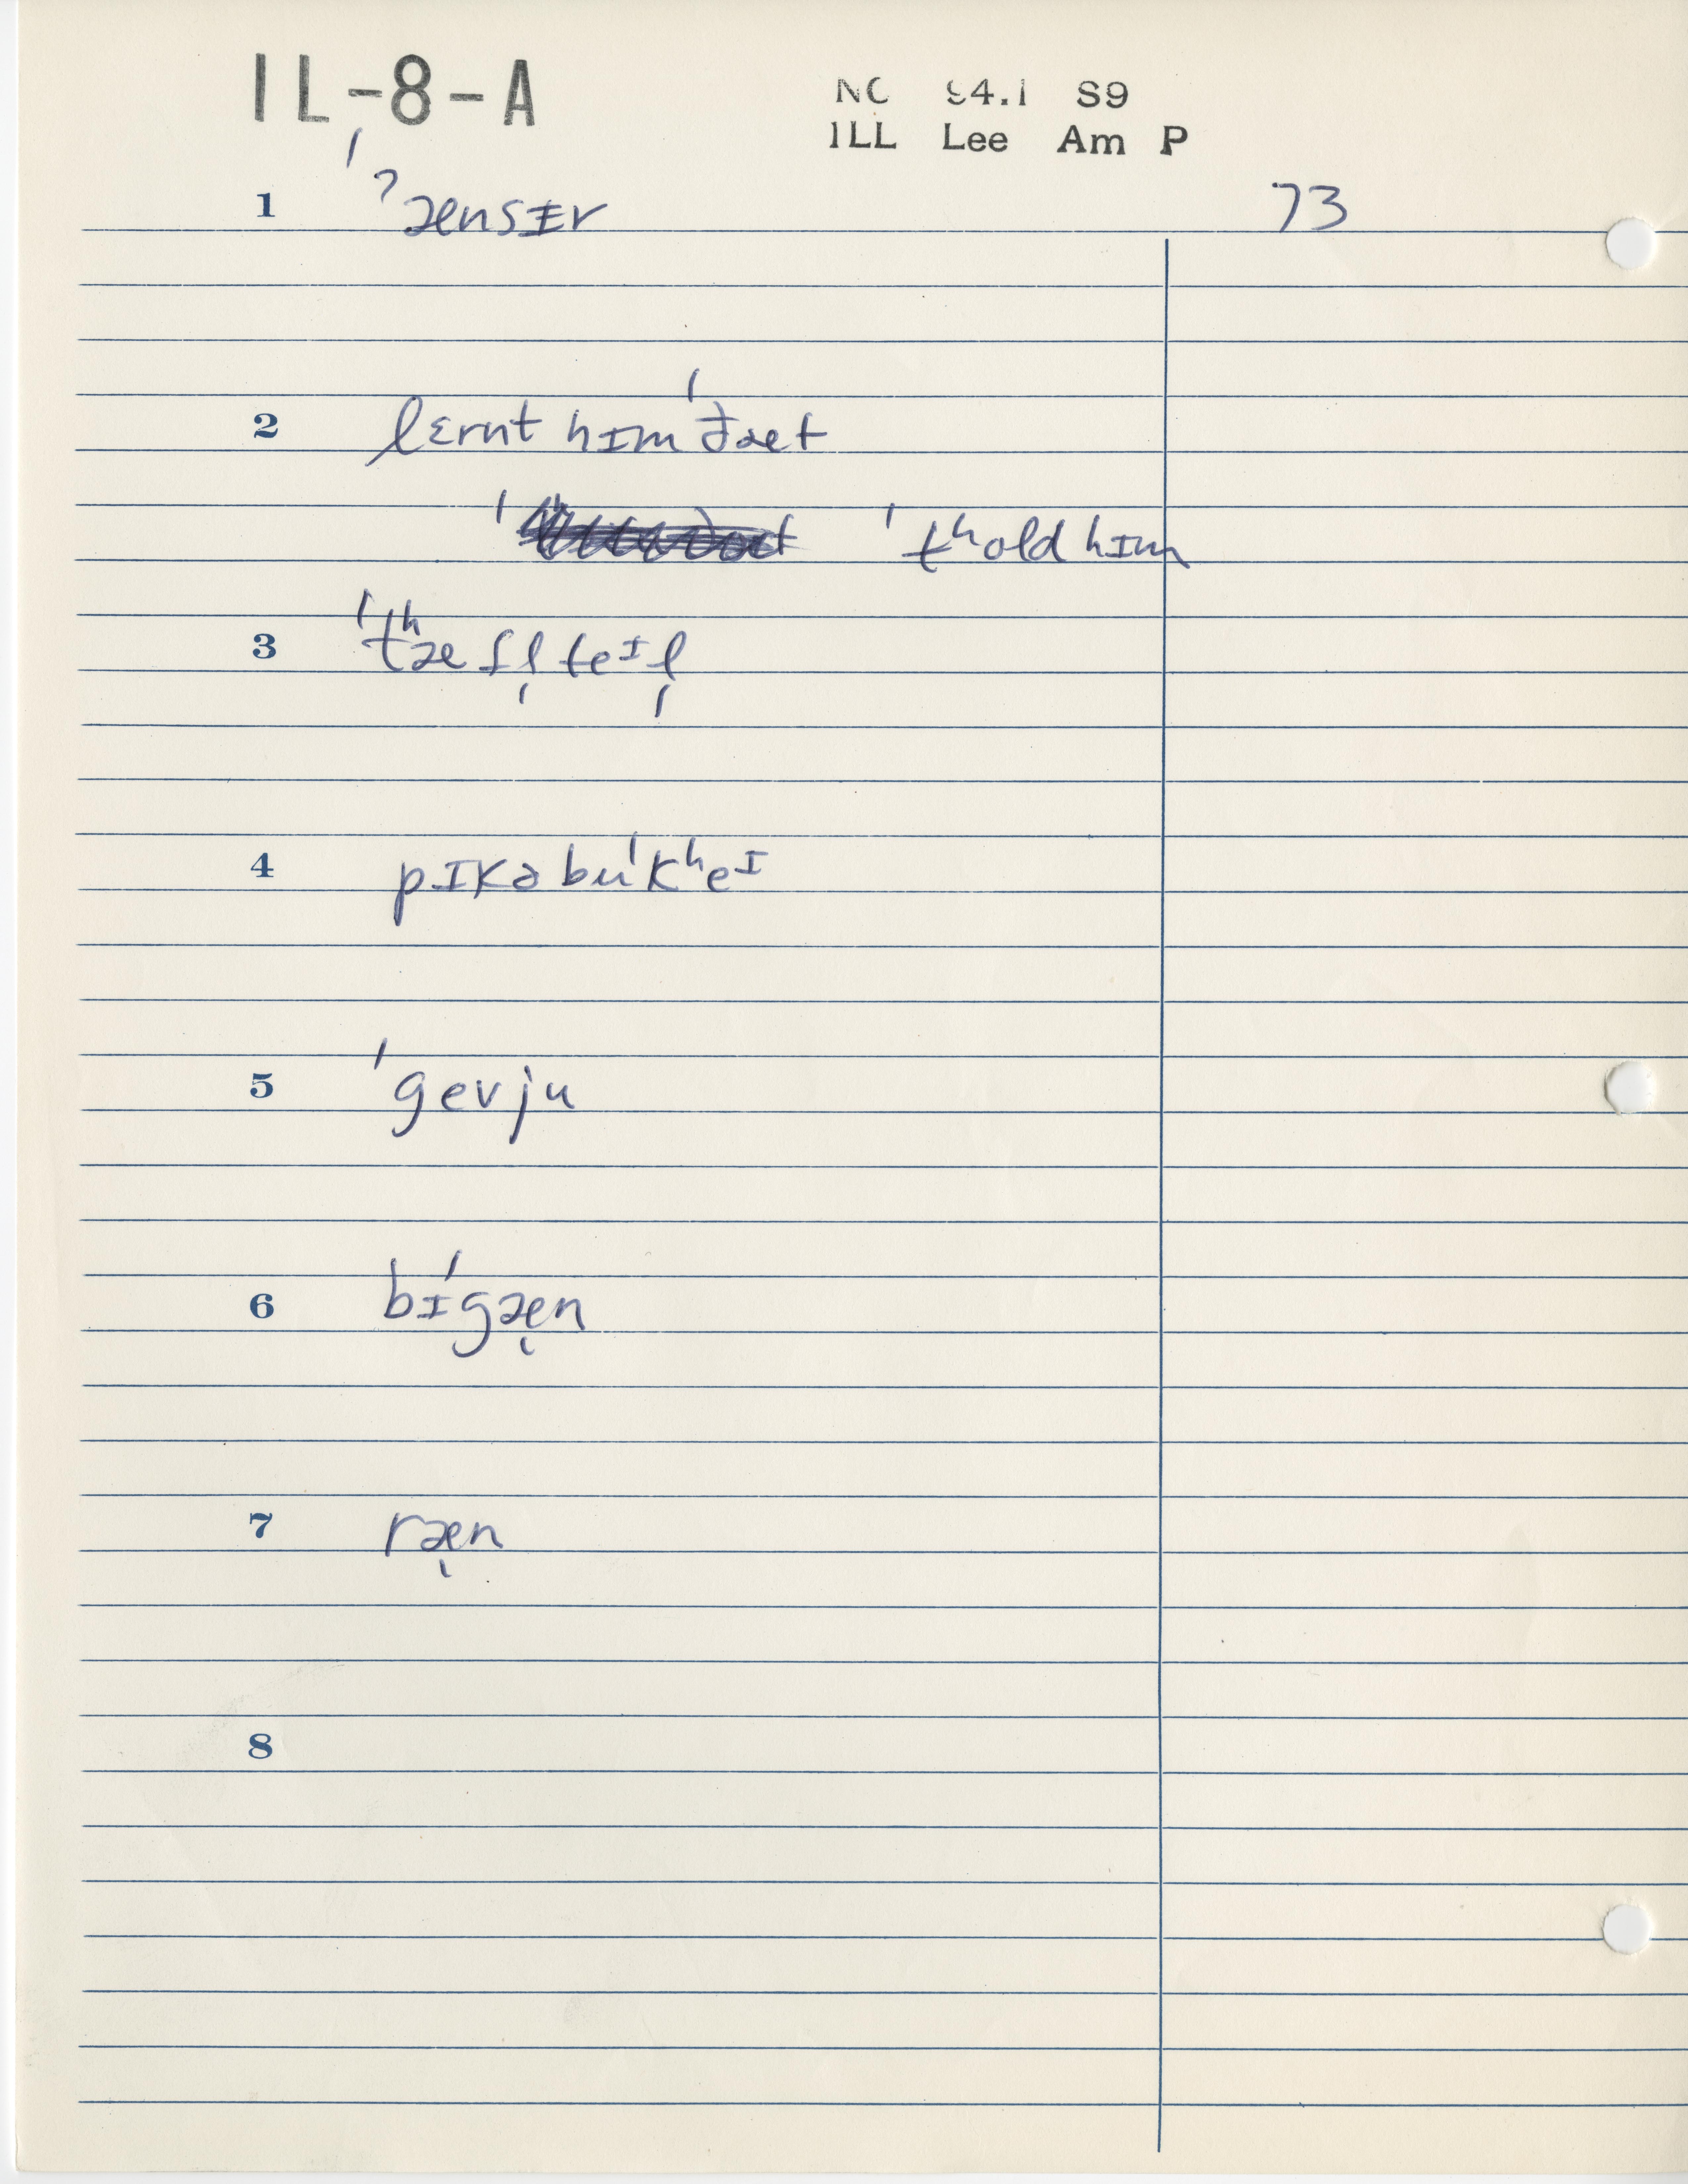 IL-8-A
NC 94.1 S9
ILL Lee Am P
1 ˈʔænsɪr 73
2 lɛrnt hɪm ˈðæt
ˈtʰold hɪm
3 ˈtʰæsl̩ teɪl̩
4 pɪkəbuˈkʰeɪ
5 ˈgevju
6 bɪˈgæn
7 ræn
8